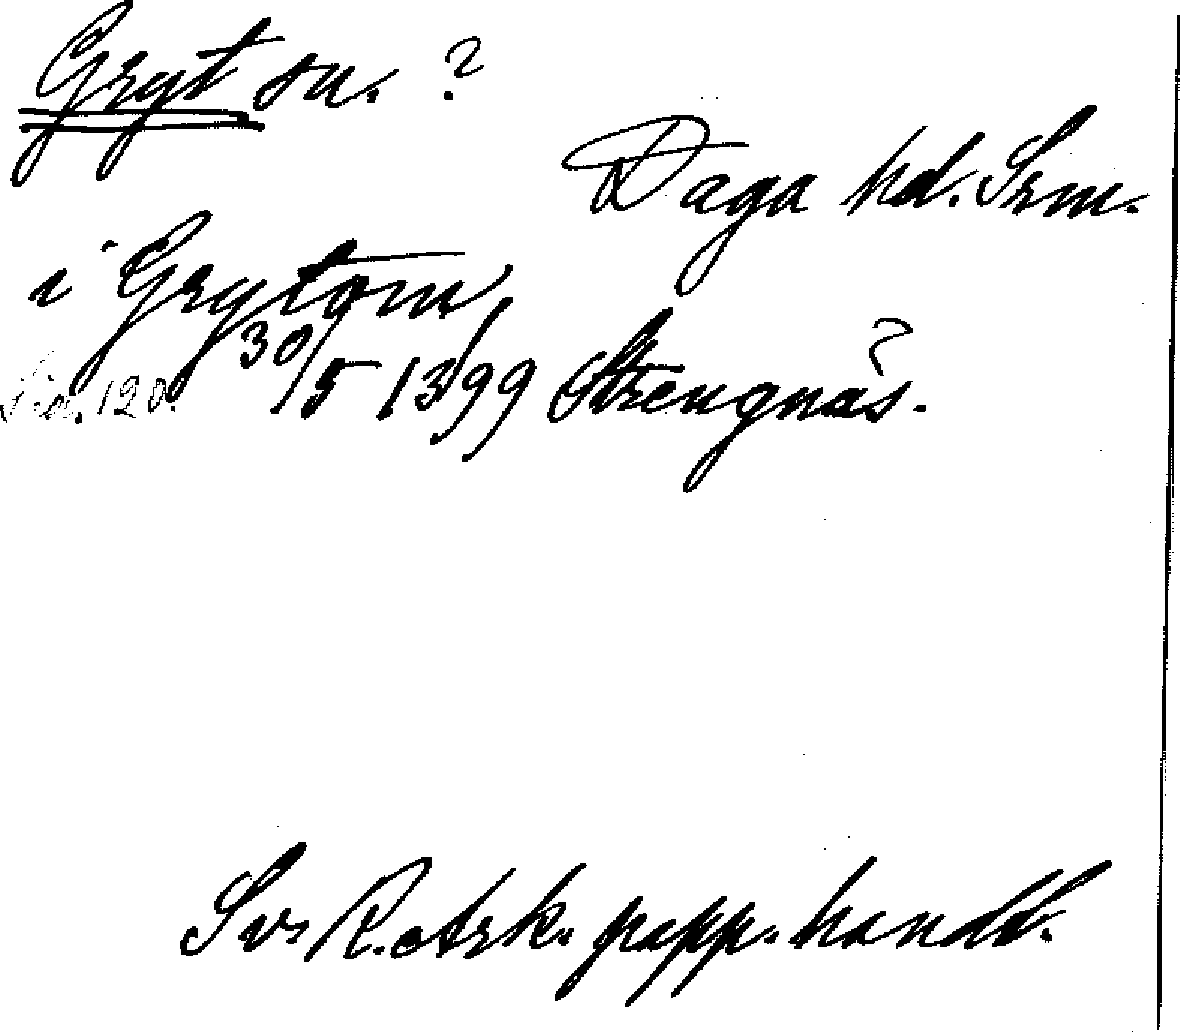 Gryt sn. ?
Daga hd. Srm.
i Grytom,
Sid. 120. 30/5 1399 Strengnäs.
Sv. R. Ark. papp. handl.